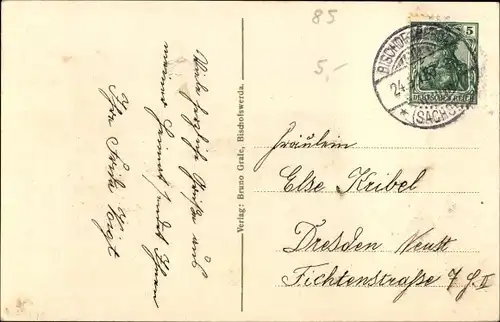 85
5,-
5
DEUTSCHES REICH
BISCHOFSWERDA
24
(SACHSEN)
Viele herzliche Grüße aus
meiner Heimat sendet Ihnen
Ihre Frida Voigt
Verlag: Bruno Grafe, Bischofswerda.
Fräulein
Else Kribel
Dresden Neust
Fichtenstraße 7 II